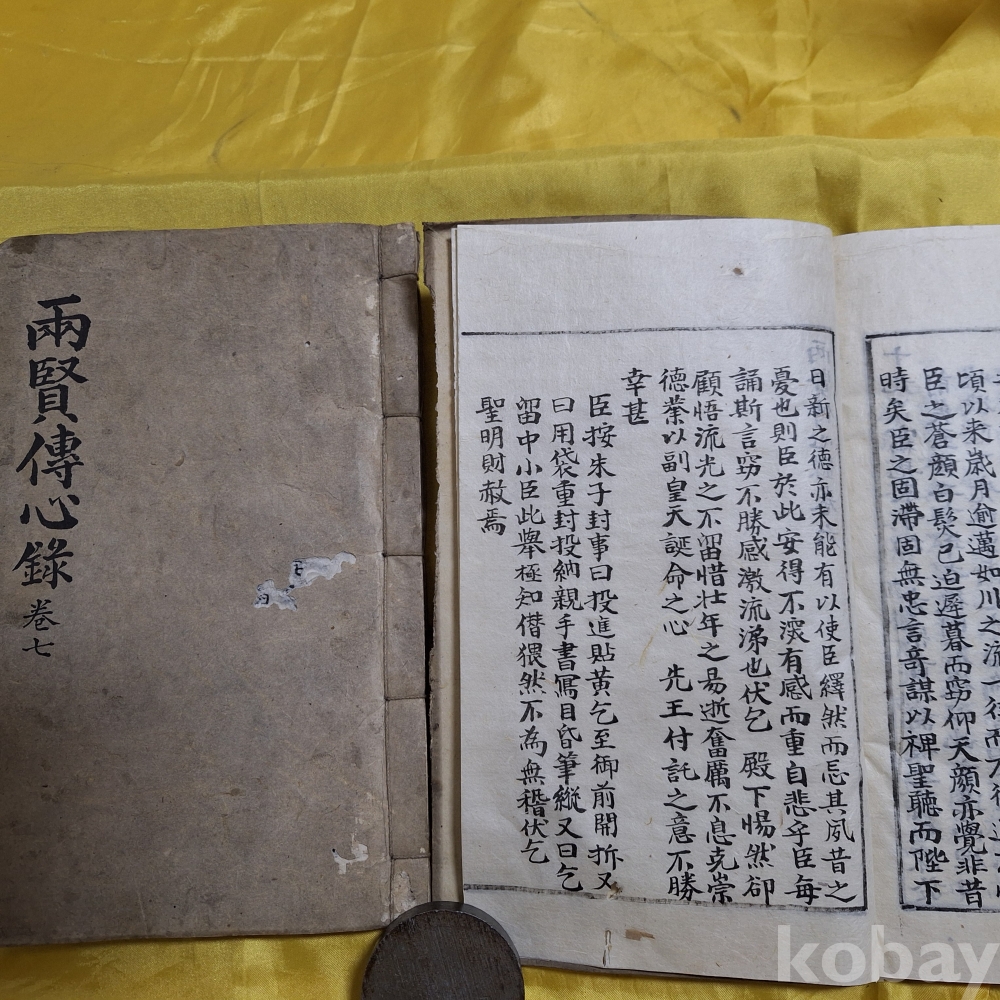 兩賢傳心錄 卷七
頃以来歲月逾邁如川之流一往而不
臣之蒼顔白髮已迫遲暮而窃仰天顔亦覺非昔
時矣臣之固滯固無忠言竒謀以裨聖聽而陛下
日新之德亦未能有以使臣繹然而忘其夙昔之
憂也則臣於此安得不深有感而重自悲乎臣每
誦斯言窃不勝感激流涕也伏乞 殿下惕然却
顧悟流光之不留惜壮年之易逝奮厲不息克崇
德業以副皇天誕命之心 先王付託之意不勝
幸甚
臣按朱子封事曰投進貼黄乞至御前開拆又
曰用袋重封投納親手書寫目昏筆縱又曰乞
留中小臣此舉極知僭猥然不為無稽伏乞
聖明財赦焉
kobay